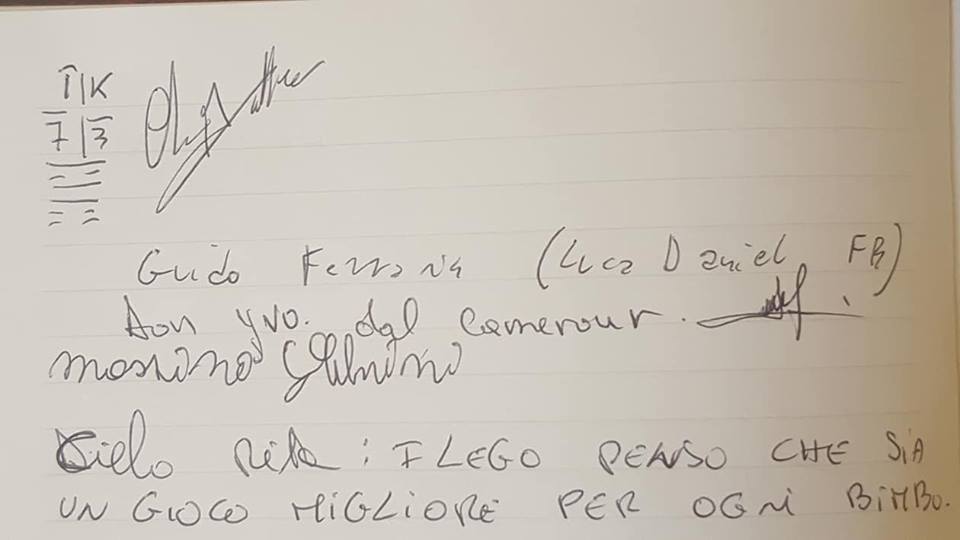 T|K
7|3
Guido (Luca Daniel, FB)
Don Yvo. dal Camerour.
Massimo
Cielo Rita: I LEGO PENSO CHE SIA
UN GIOCO MIGLIORE PER OGNI BIMBO.